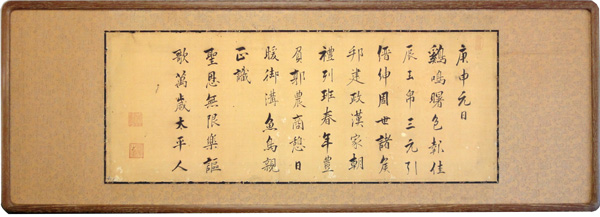 庚申元日
鷄鳴曙色報佳
辰玉帛三元引
縉紳周世諸侯
邦建政漢家朝
禮列班春年豊
負郭農商憩日
暖御溝魚鳥親
正識
聖恩無限樂謳
歌萬歳太平人